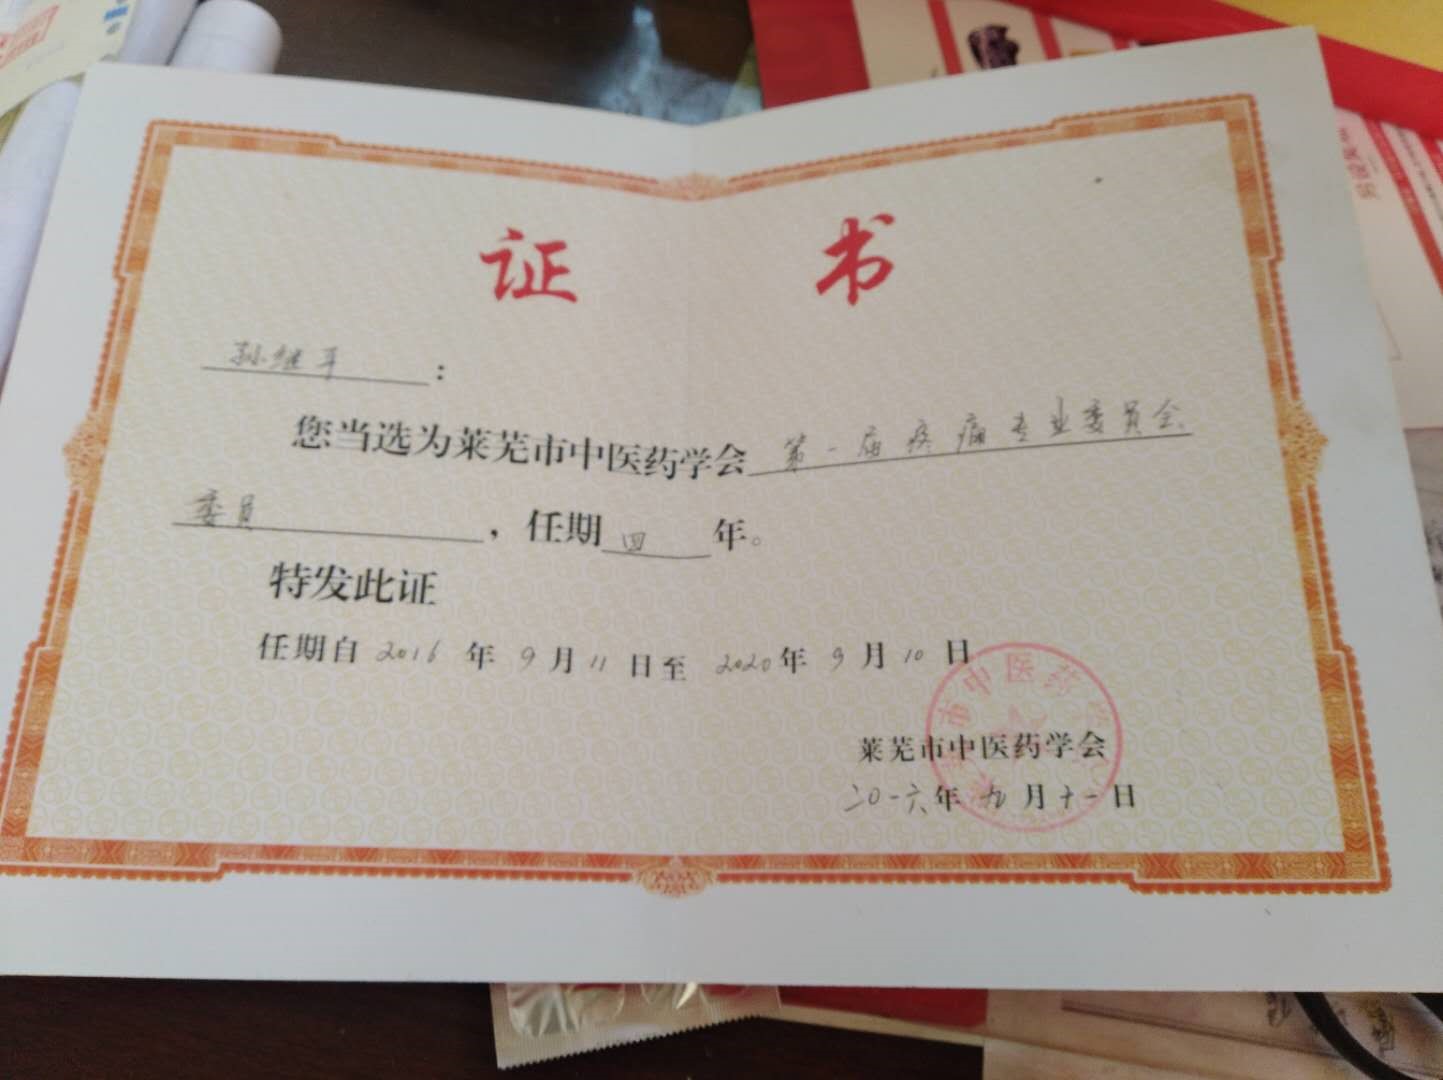 证 书
孙继平：
您当选为莱芜市中医药学会第一届疼痛专业委员会
委员，任期四年。
特发此证
任期自2016年9月11日至2020年9月10日
莱芜市中医药学会
二〇一六年九月十一日